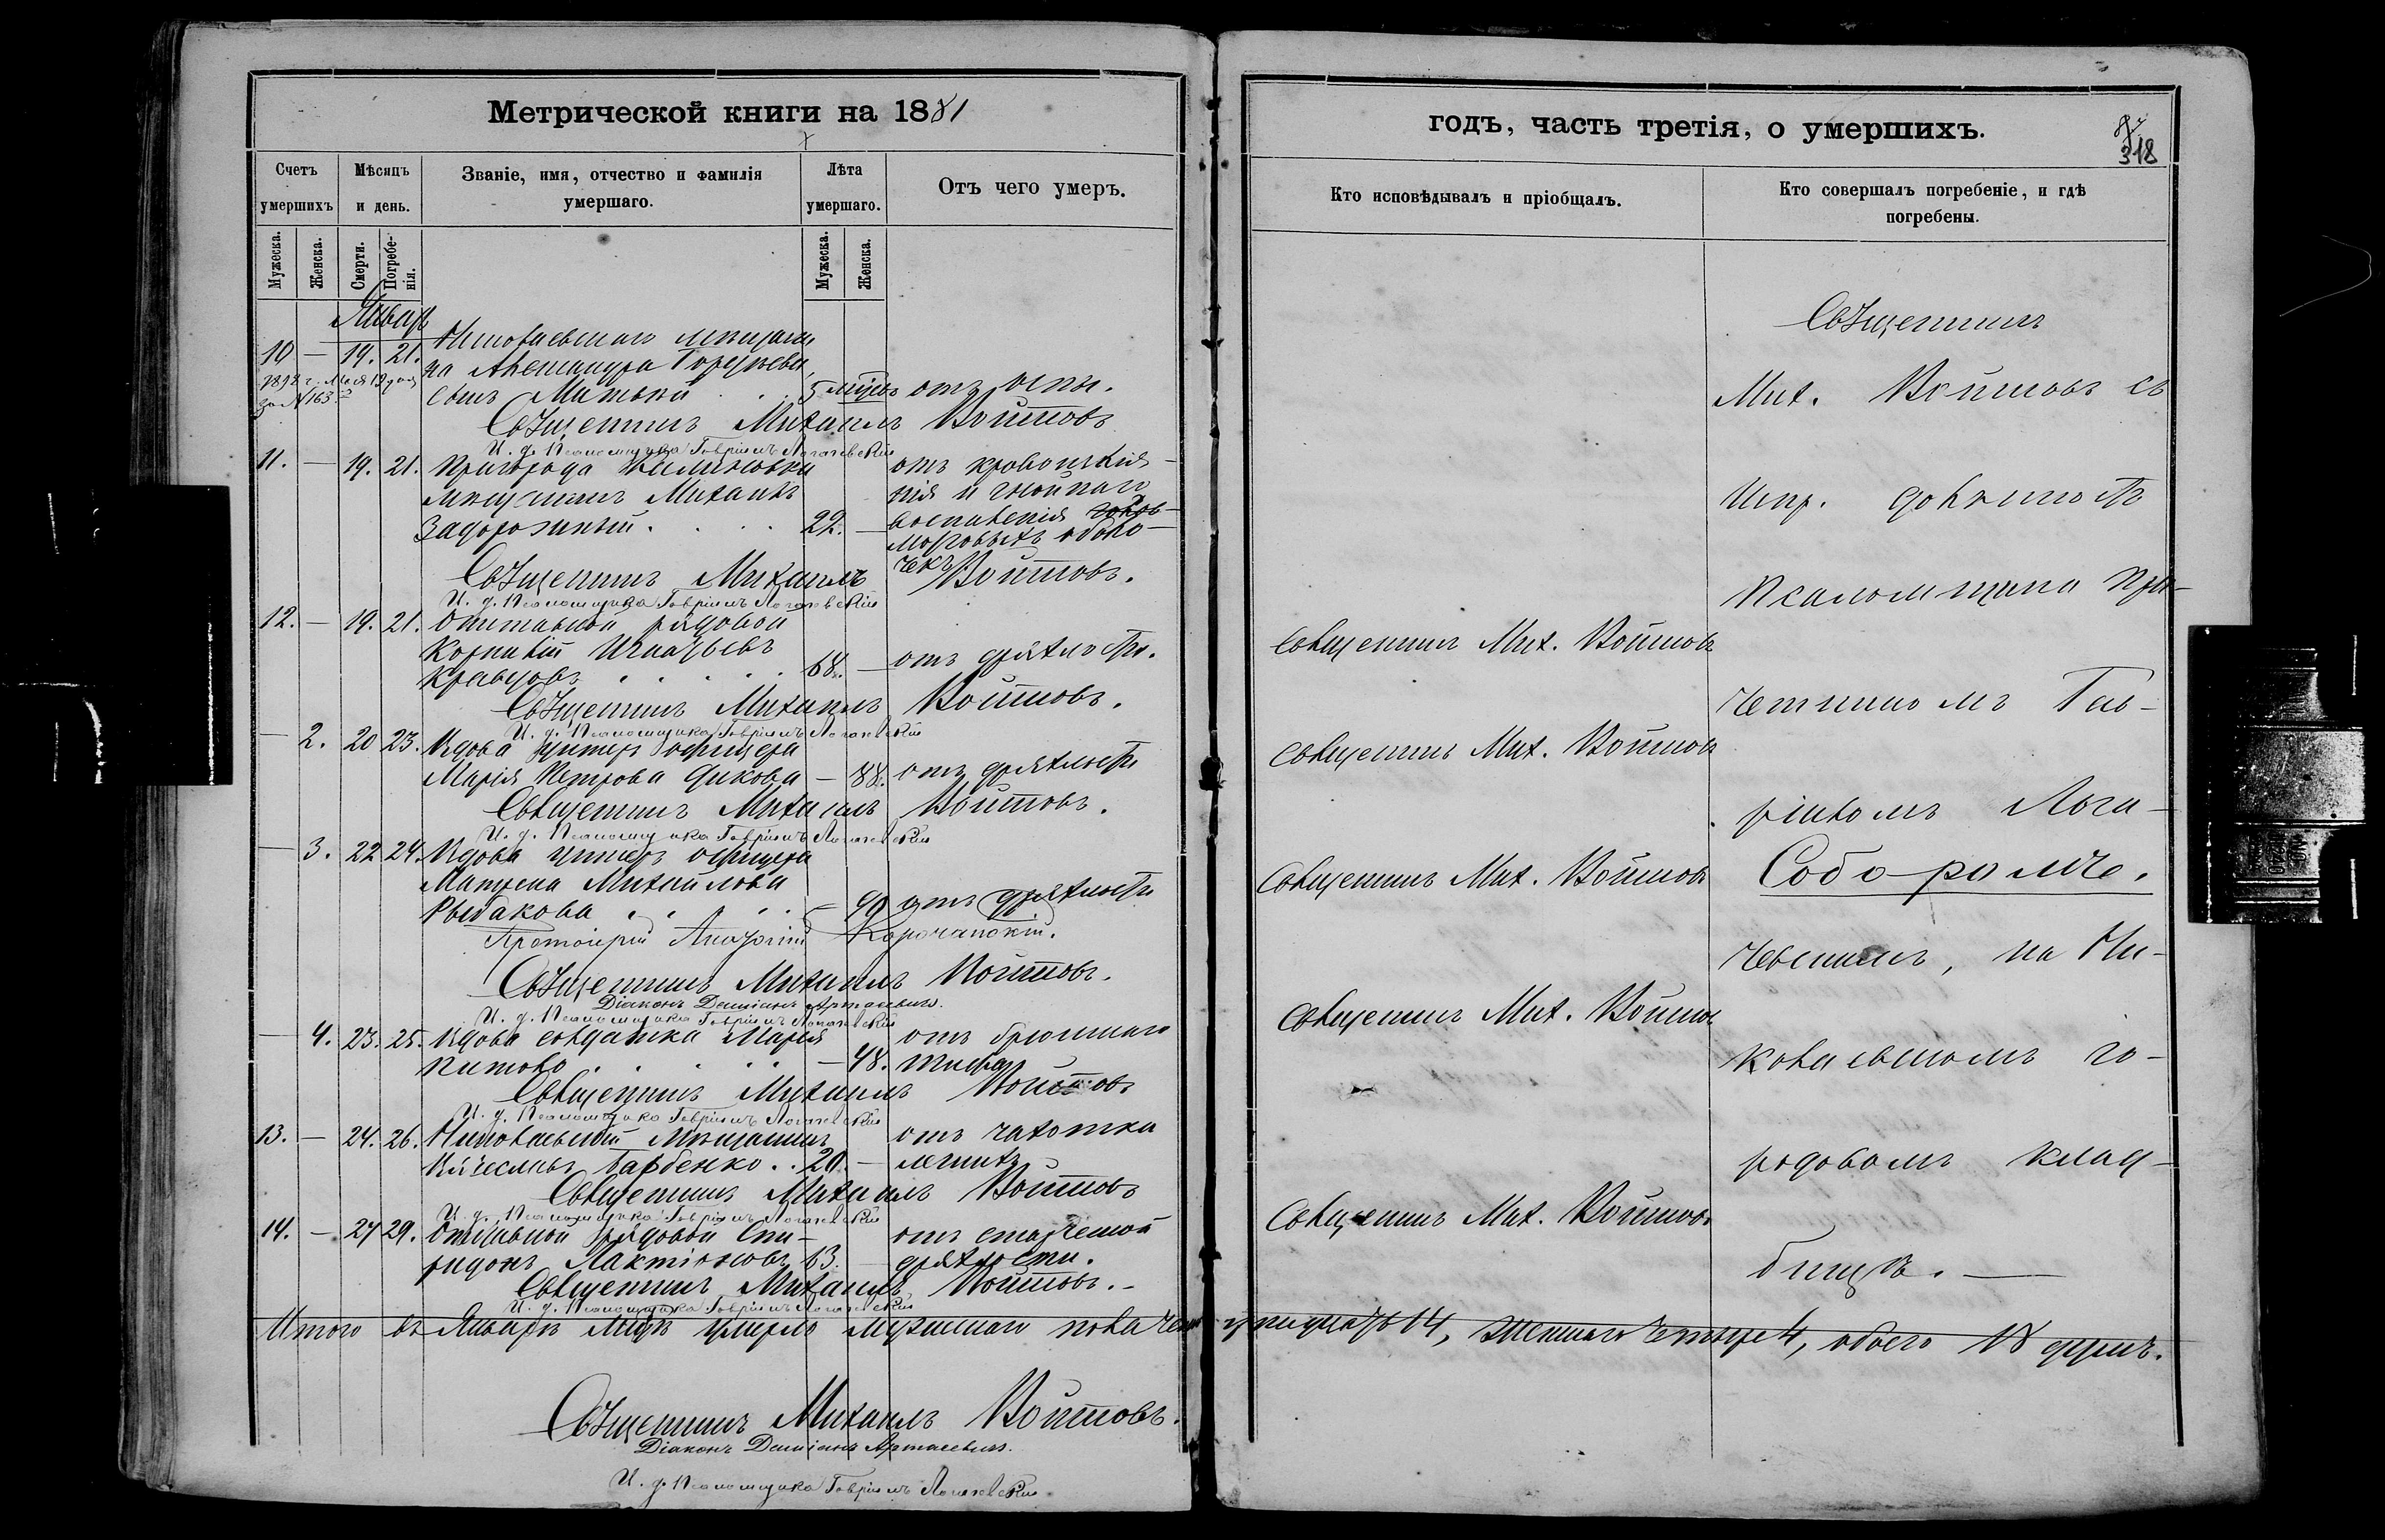 Метрической книги на 1881
Счетъ умершихъ
Мѣсяцъ и день.
Званіе, имя, отчество и фамилія умершаго.
Лѣта умершаго.
Отъ чего умеръ.
Мужеска.
Женска.
Смерти.
Погребенія.
Мужеска.
Женска.
Январь
10 — 19. 21. Николаевскаго мѣщани
на Александра
сынъ 5 мцевъ отъ оспы.
Священникъ Михаилъ Войтовъ
И. д. Псаломщика Гавріилъ Логачевскій
11. — 19. 21. Пригорода Калиновки отъ кровоизлія-
мѣщанинъ Михаилъ нія и гнойнаго
Задорожный 22. — воспаленія
мозговыхъ оболо-
чекъ
Священникъ Михаилъ Войтовъ.
И. д. Псаломщика Гавріилъ Логачевскій
12. — 19. 21. Отставной рядовой
Корнилій Игнатьевъ
Кравцовъ 68. — отъ дряхлости.
Священникъ Михаилъ Войтовъ.
И. д. Псаломщика Гавріилъ Логачевскій
— 2. 20 23. Вдова унтеръ офицера
Марія Петрова Дикова — 88. отъ дряхлости
Священникъ Михаилъ Войтовъ.
И. д. Псаломщика Гавріилъ Логачевскій
— 3. 22 24. Вдова унтеръ офицера
Матрена Михайлова
Рыбакова — 90 отъ дряхлости
Протоіерей
Священникъ Михаилъ Войтовъ.
Діаконъ Даміанъ
И. д. Псаломщика Гавріилъ Логачевскій
— 4. 23. 25. Вдова солдатка Марія отъ брюшнаго
— 48. тифа
Священникъ Михаилъ Войтовъ
И. д. Псаломщика Гавріилъ Логачевскій
13. — 24. 26. Николаевскій мѣщанинъ отъ чахотки
Вячеславъ Барбенко 20. — легкихъ
Священникъ Михаилъ Войтовъ
И. д. Псаломщика Гавріилъ Логачевскій
14. — 27 29. Отставной рядовой Спи- отъ старческой
ридонъ Лактіоновъ 63. дряхлости.
Священникъ Михаилъ Войтовъ.
И. д. Псаломщика Гавріилъ Логачевскій
Итого въ Январѣ мцѣ умерло мужескаго пола четырнадцать 14, женскаго четыре 4, обоего 18 душъ.
Священникъ Михаилъ Войтовъ.
Діаконъ Даміанъ
И. д. Псаломщика Гавріилъ Логачевскій
годъ, часть третія, о умершихъ.
318
Кто исповѣдывалъ и пріобщалъ.
Кто совершалъ погребеніе, и гдѣ погребены.
Священникъ Мих. Войтовъ
Священникъ Мих. Войтовъ
Священникъ Мих. Войтовъ
Священникъ Мих. Войтовъ
Священникъ Мих. Войтовъ
Священникъ
Мих. Войтовъ съ
Испр. должность
Псаломщика При-
четникомъ Гав-
ріиломъ Лога-
Соборомче.
чевскимъ, на Ни-
колаевскомъ го-
родовомъ клад-
бищѣ.